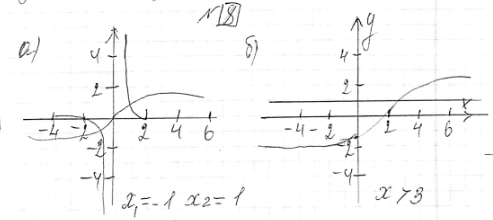 №18
а) б)
y
4 4
2 2
-4 -2 2 4 6 -4 -2 2 4 6 x
-2 -2
-4 -4
x₁=-1 x₂=1 x>3